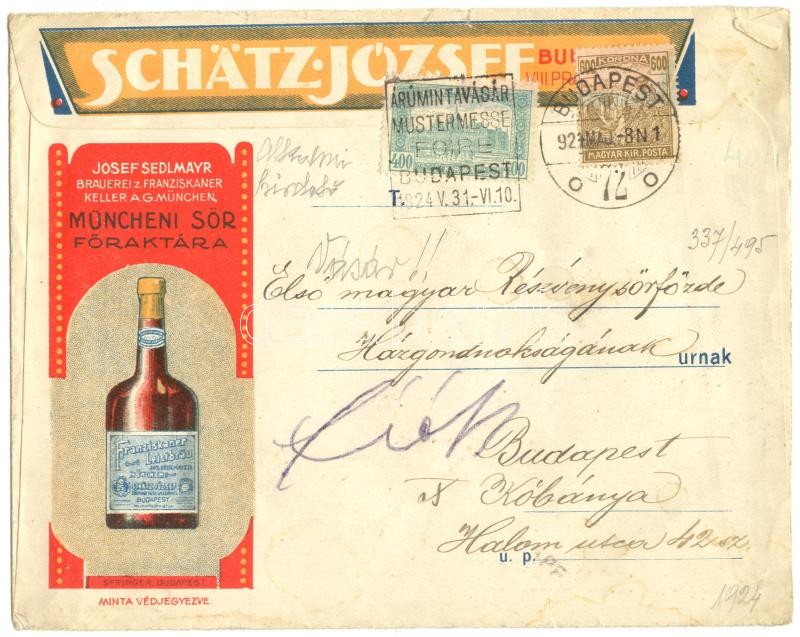 SCHÄTZ·JÓZSEF BU
VIII. PR
600 KORONA 600
MAGYAR·KIR.POSTA
400
ÁRÚMINTAVÁSÁR
MUSTERMESSE
FOIRE
BUDAPEST
1924 V. 31.-VI.10.
BUDAPEST
924 MÁJ -8 N 1
72
T.
JOSEF SEDLMAYR
BRAUEREI Z. FRANZISKANER
KELLER A.G. MÜNCHEN,
MÜNCHENI SÖR
FŐRAKTÁRA
Franziskaner
Leistbräu
JOS. SEDLMAYR
MÜNCHEN
SCHÄTZ JÓZSEF
BUDAPEST
SPRINGER, BUDAPEST.
MINTA VÉDJEGYEZVE.
Alkalmi
Vásár!!
337/495
Első magyar Részvénysörfőzde
Házgondnokságának urnak
Budapest
X Kőbánya
Halom utca 42 sz.
u. p.
1924